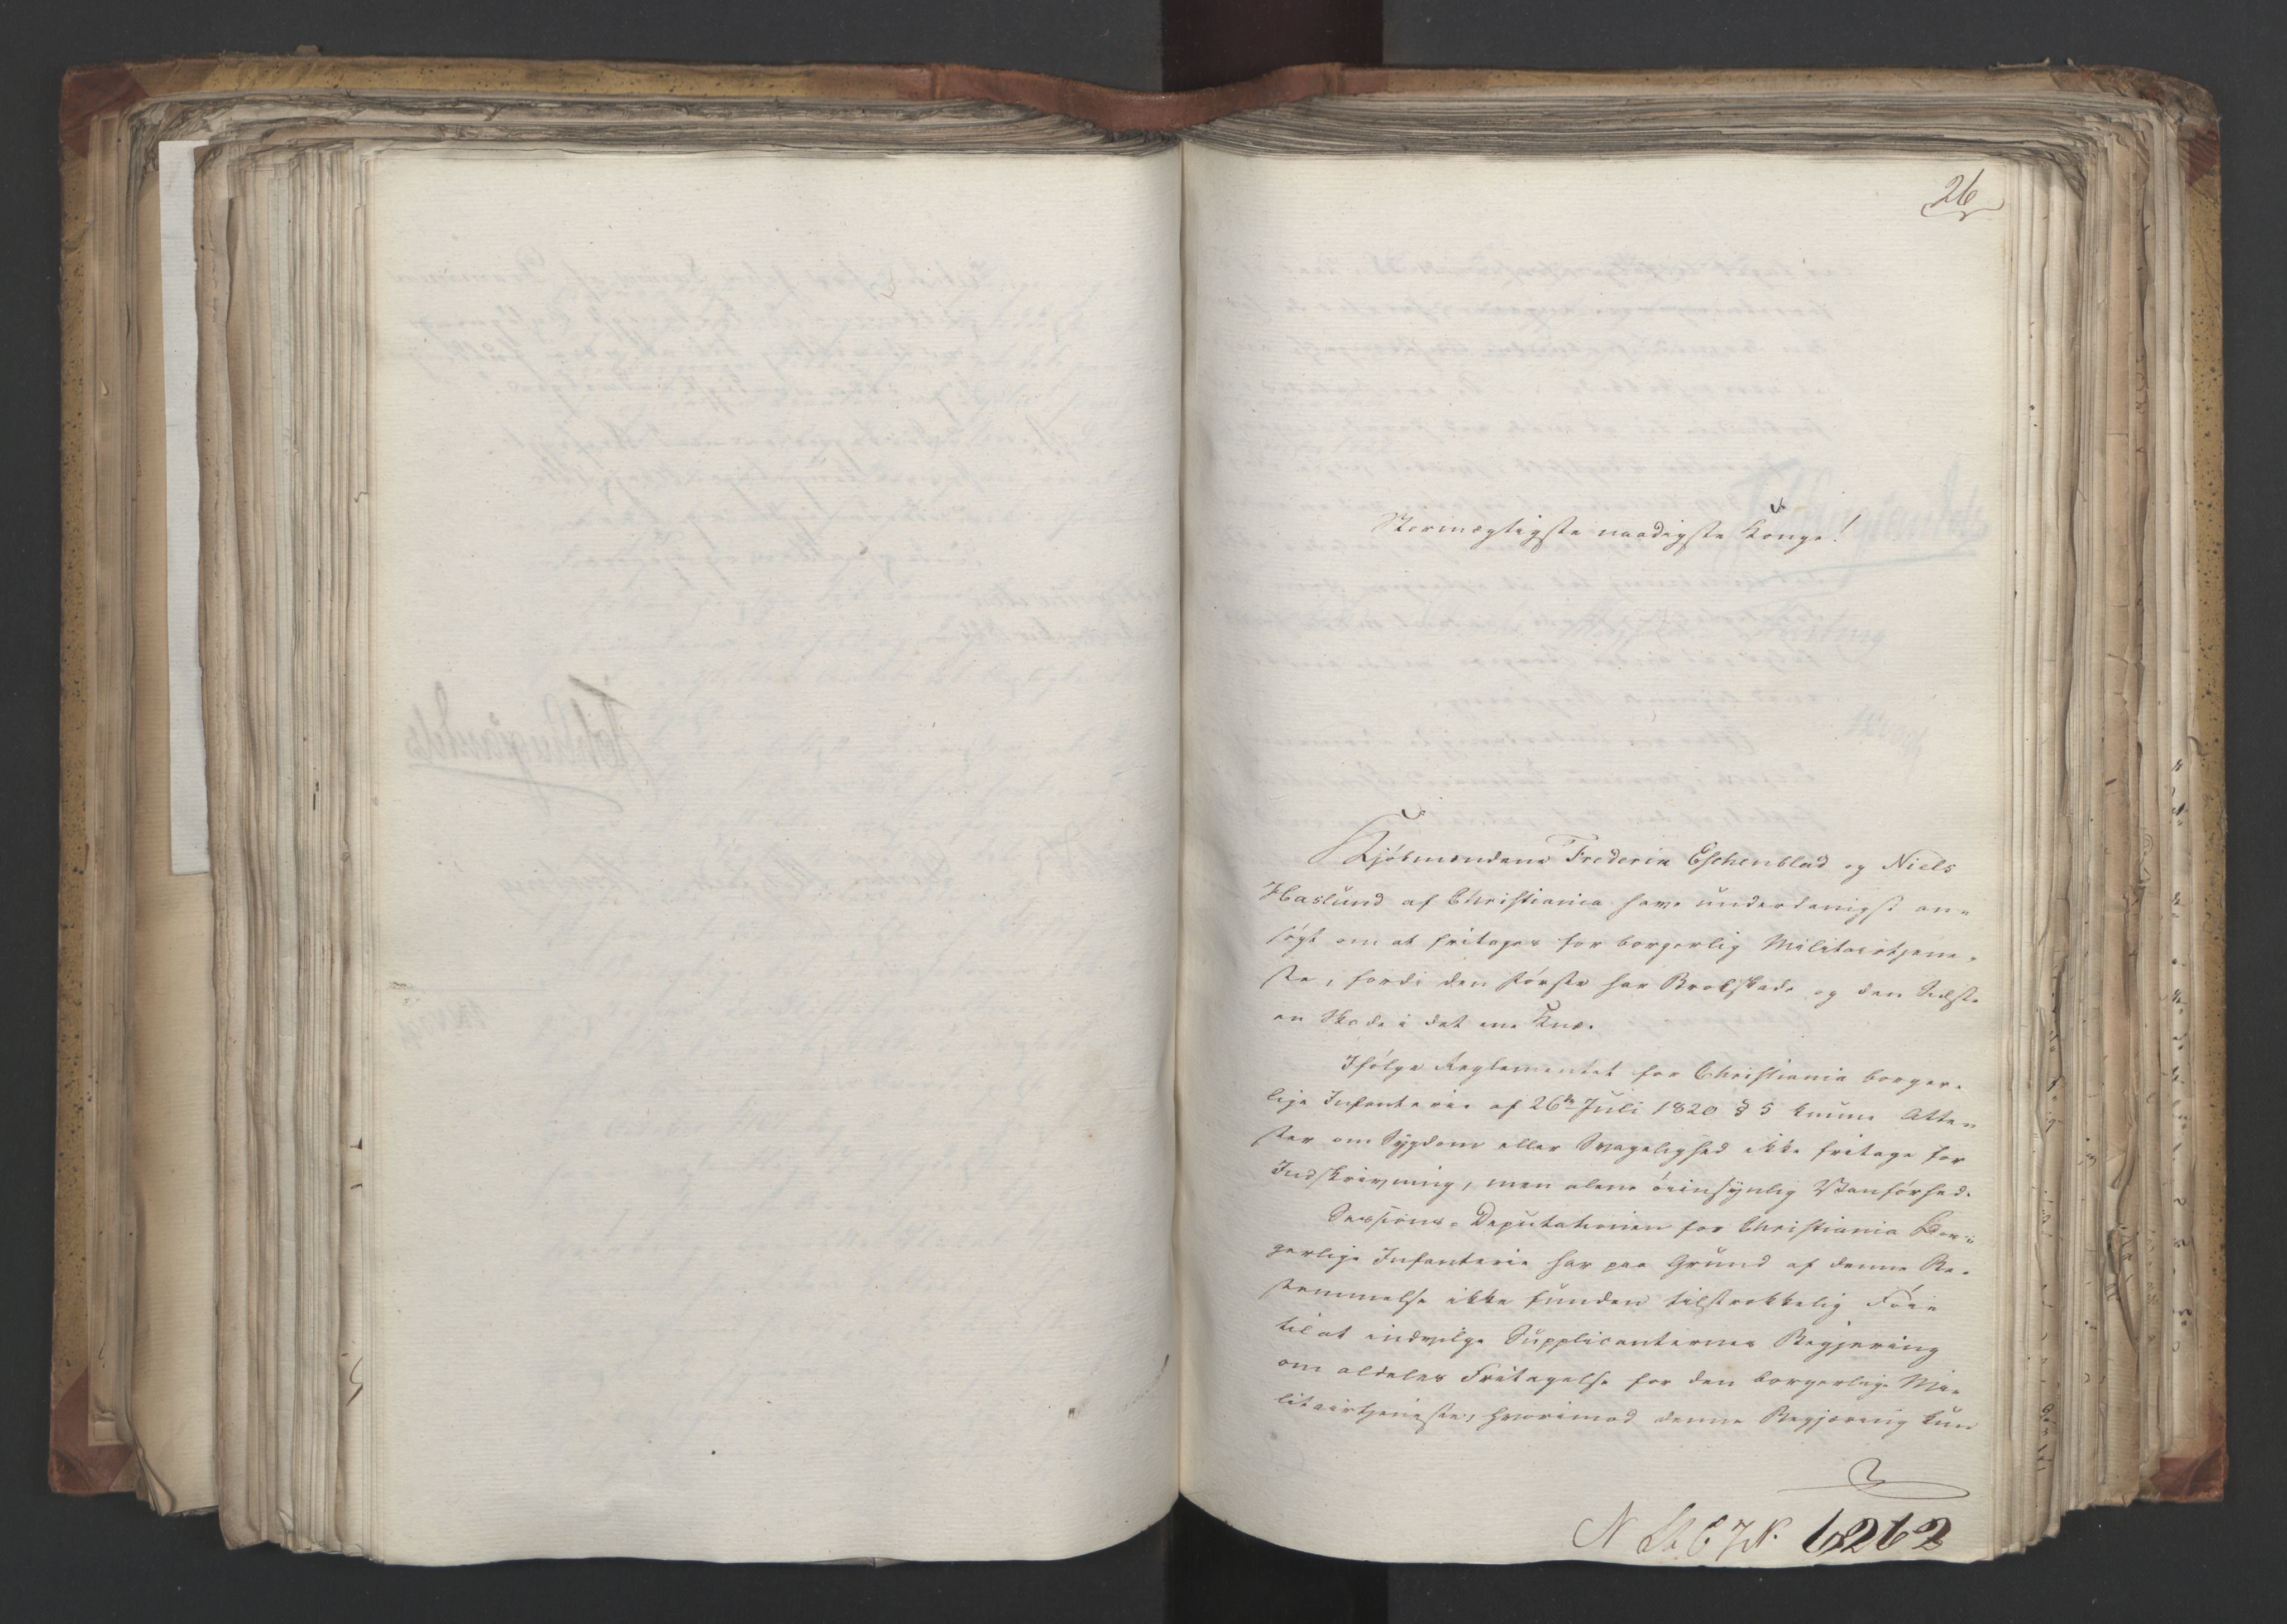 26
Stormægtigste naadigste Konge!
Kjöbmændene Frederik Eschenblad og Niels
Haslund af Christiania have underdanigst an-
sögt om at fritages for borgerlig Militairtjene-
ste, fordi den förste har Brokskade og den Sidste
en Skade i det ene Knæ.
Ifölge Reglementet for Christiania borger-
lige Infanterie af 26de Juli 1820 § 5 kunne Atte-
ster om Sygdom eller Svagelighed ikke fritage for
Indskrivning, men alene öiensynlig Vanförhed.
Sessions-Deputationen for Christiania Bor-
gerlige Infanterie har paa Grund af denne Be-
stemmelse ikke funden tilstrækkelig Föie
til at indvilge Supplicanternes Begjering
om aldeles Fritagelse for den borgerlige Mi-
litairtjeneste, hvorimod denne Begjæring kun
6262